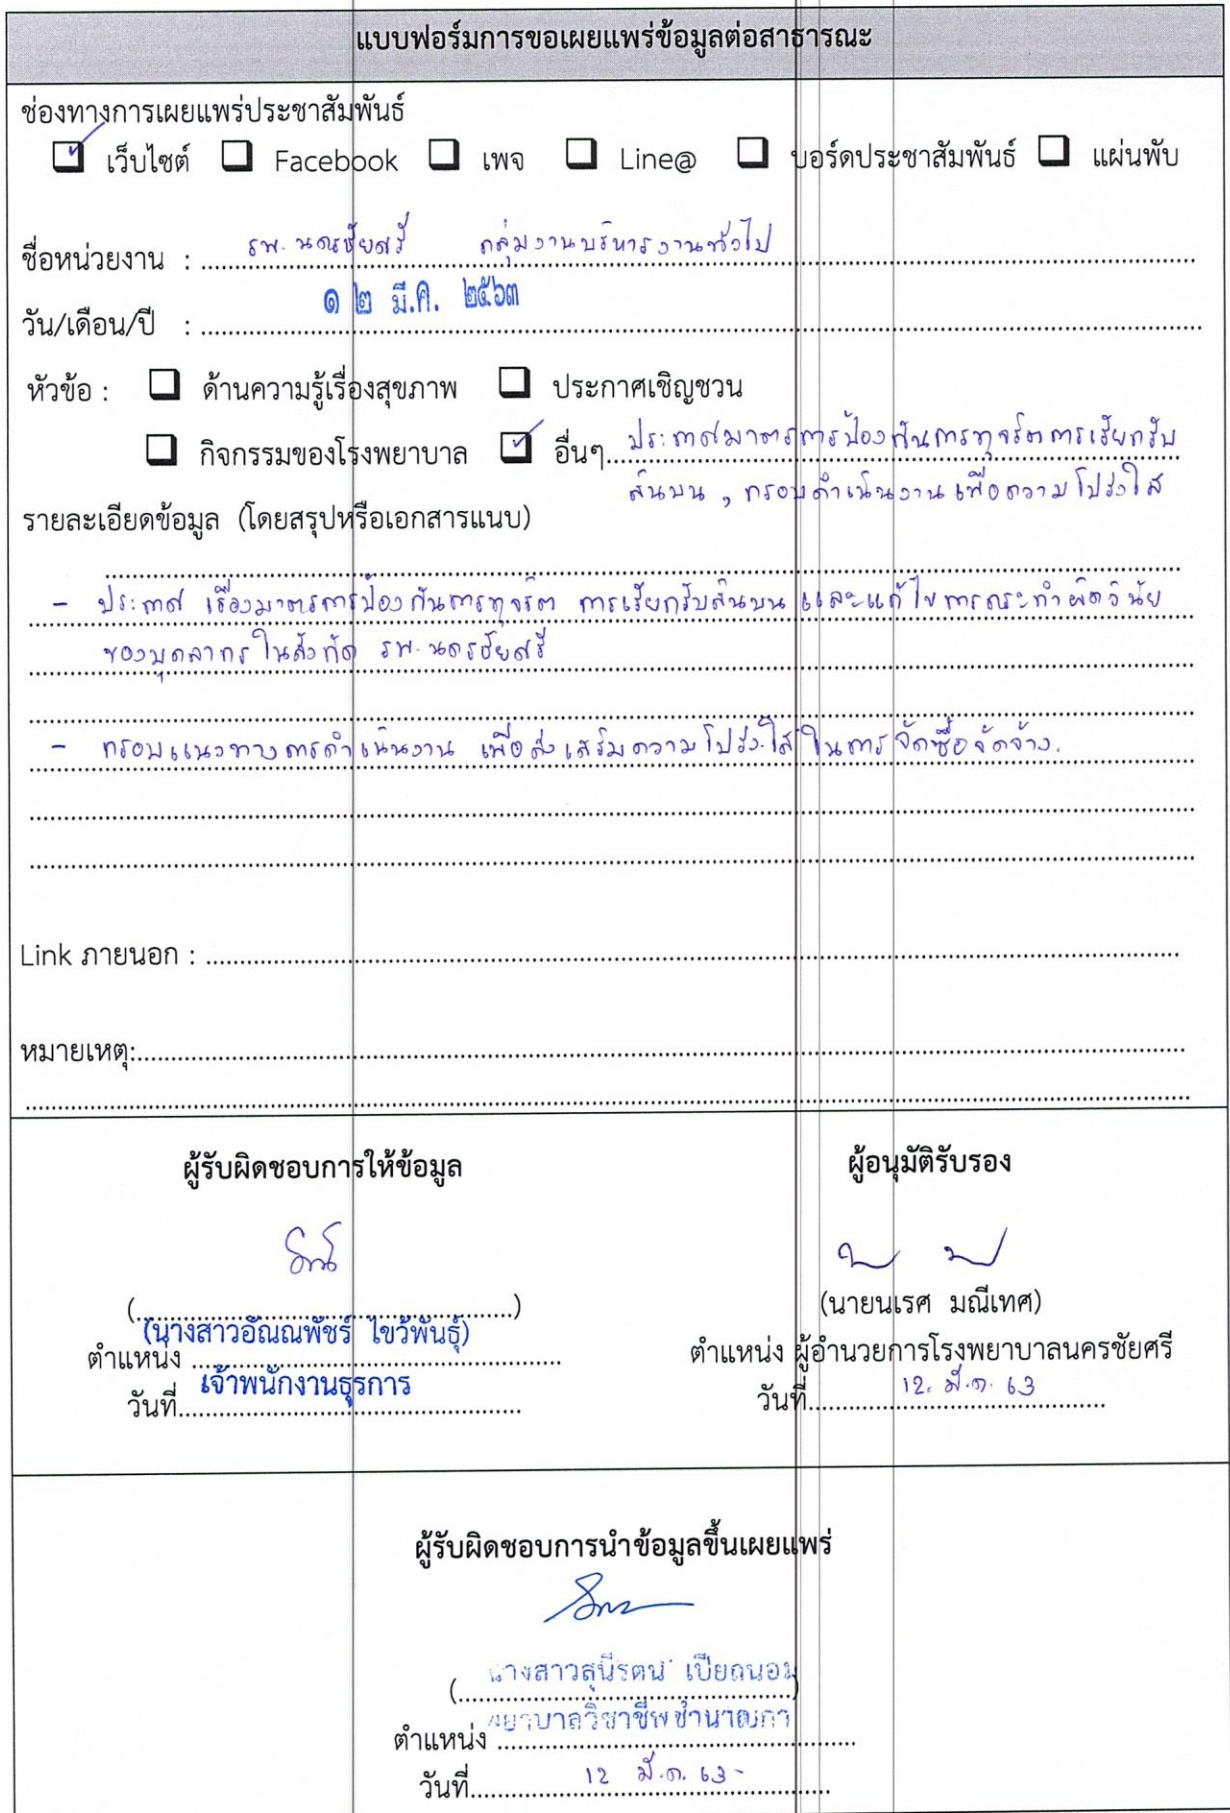 แบบฟอร์มการขอเผยแพร่ข้อมูลต่อสาธารณะ
ช่องทางการเผยแพร่ประชาสัมพันธ์
เว็บไซต์ Facebook เพจ Line@ บอร์ดประชาสัมพันธ์ แผ่นพับ
ชื่อหน่วยงาน : รพ. นครชัยศรี กลุ่มงานบริหารงานทั่วไป
วัน/เดือน/ปี : ๑ ๒ มี.ค. ๒๕๖๓
หัวข้อ : ด้านความรู้เรื่องสุขภาพ ประกาศเชิญชวน
กิจกรรมของโรงพยาบาล อื่นๆ ประกาศมาตรการป้องกันการทุจริตการเรียกรับ
สินบน , กรอบดำเนินงานเพื่อความโปร่งใส
รายละเอียดข้อมูล (โดยสรุปหรือเอกสารแนบ)
- ประกาศ เรื่องมาตรการป้องกันการทุจริต การเรียกรับสินบน และแก้ไขการกระทำผิดวินัย
ของบุคลากรในสังกัด รพ. นครชัยศรี
- กรอบแนวทางการดำเนินงาน เพื่อส่งเสริมความโปร่งใส ในการจัดซื้อจัดจ้าง.
Link ภายนอก :
หมายเหตุ:
ผู้รับผิดชอบการให้ข้อมูล
ผู้อนุมัติรับรอง
(นางสาวอัณณพัชร์ ไขว้พันธุ์)
ตำแหน่ง
เจ้าพนักงานธุรการ
วันที่
(นายนเรศ มณีเทศ)
ตำแหน่ง ผู้อำนวยการโรงพยาบาลนครชัยศรี
วันที่ 12. มี.ค. 63
ผู้รับผิดชอบการนำข้อมูลขึ้นเผยแพร่
(นางสาวสุนีรัตน์
ตำแหน่ง พยาบาลวิชาชีพชำนาญกา
วันที่ 12 มี.ค. 63-